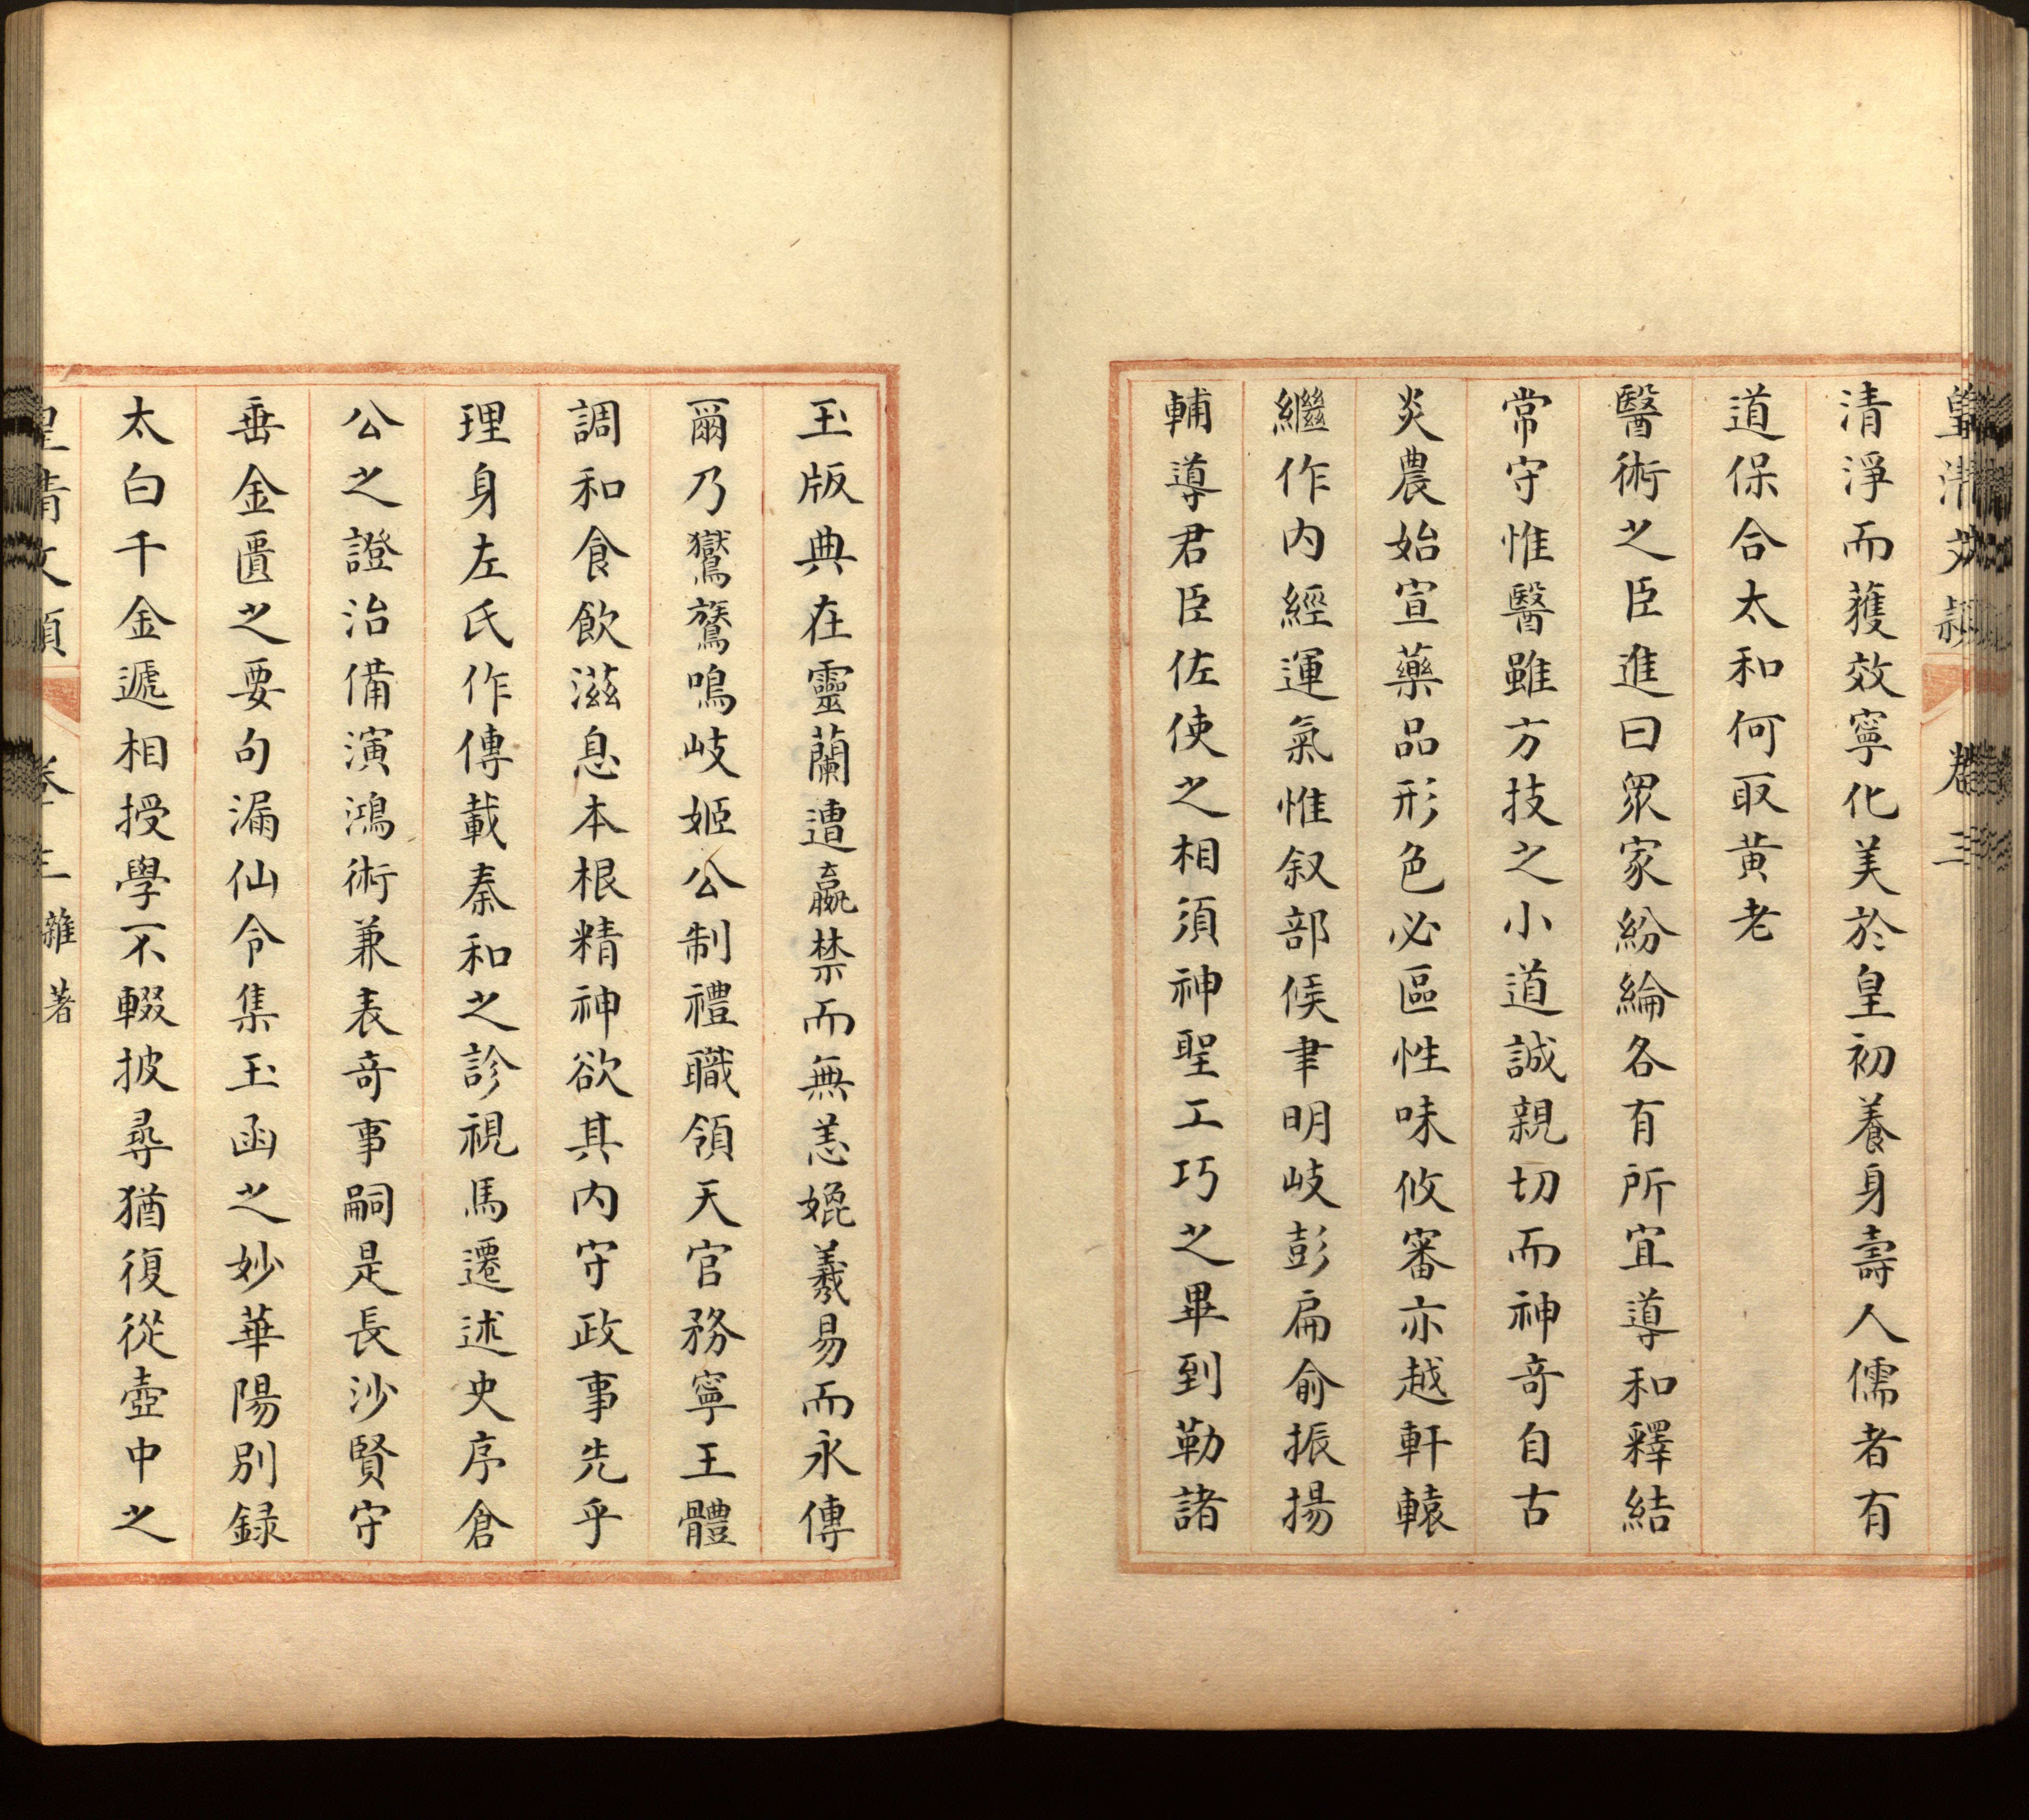 皇清文穎
卷三
清淨而獲效寧化美於皇初養身壽人儒者有
道保合太和何取黃老
醫術之臣進曰眾家紛綸各有所宜導和釋結
常守惟醫雖方技之小道誠親切而神奇自古
炎農始宣藥品形色必區性味攸審亦越軒轅
繼作內經運氣惟叙部候聿明岐彭扁俞振揚
輔導君臣佐使之相須神聖工巧之畢到勒諸
玉版典在靈蘭遭嬴禁而無恙媲羲易而永傳
爾乃鸑鷟鳴岐姬公制禮職領天官務寧王體
調和食飲滋息本根精神欲其內守政事先乎
理身左氏作傳載秦和之診視馬遷述史序倉
公之證治備演鴻術兼表奇事嗣是長沙賢守
垂金匱之要句漏仙令集玉函之妙華陽別録
太白千金遞相授學不輟披尋猶復從壺中之
皇清文穎
卷 雜著